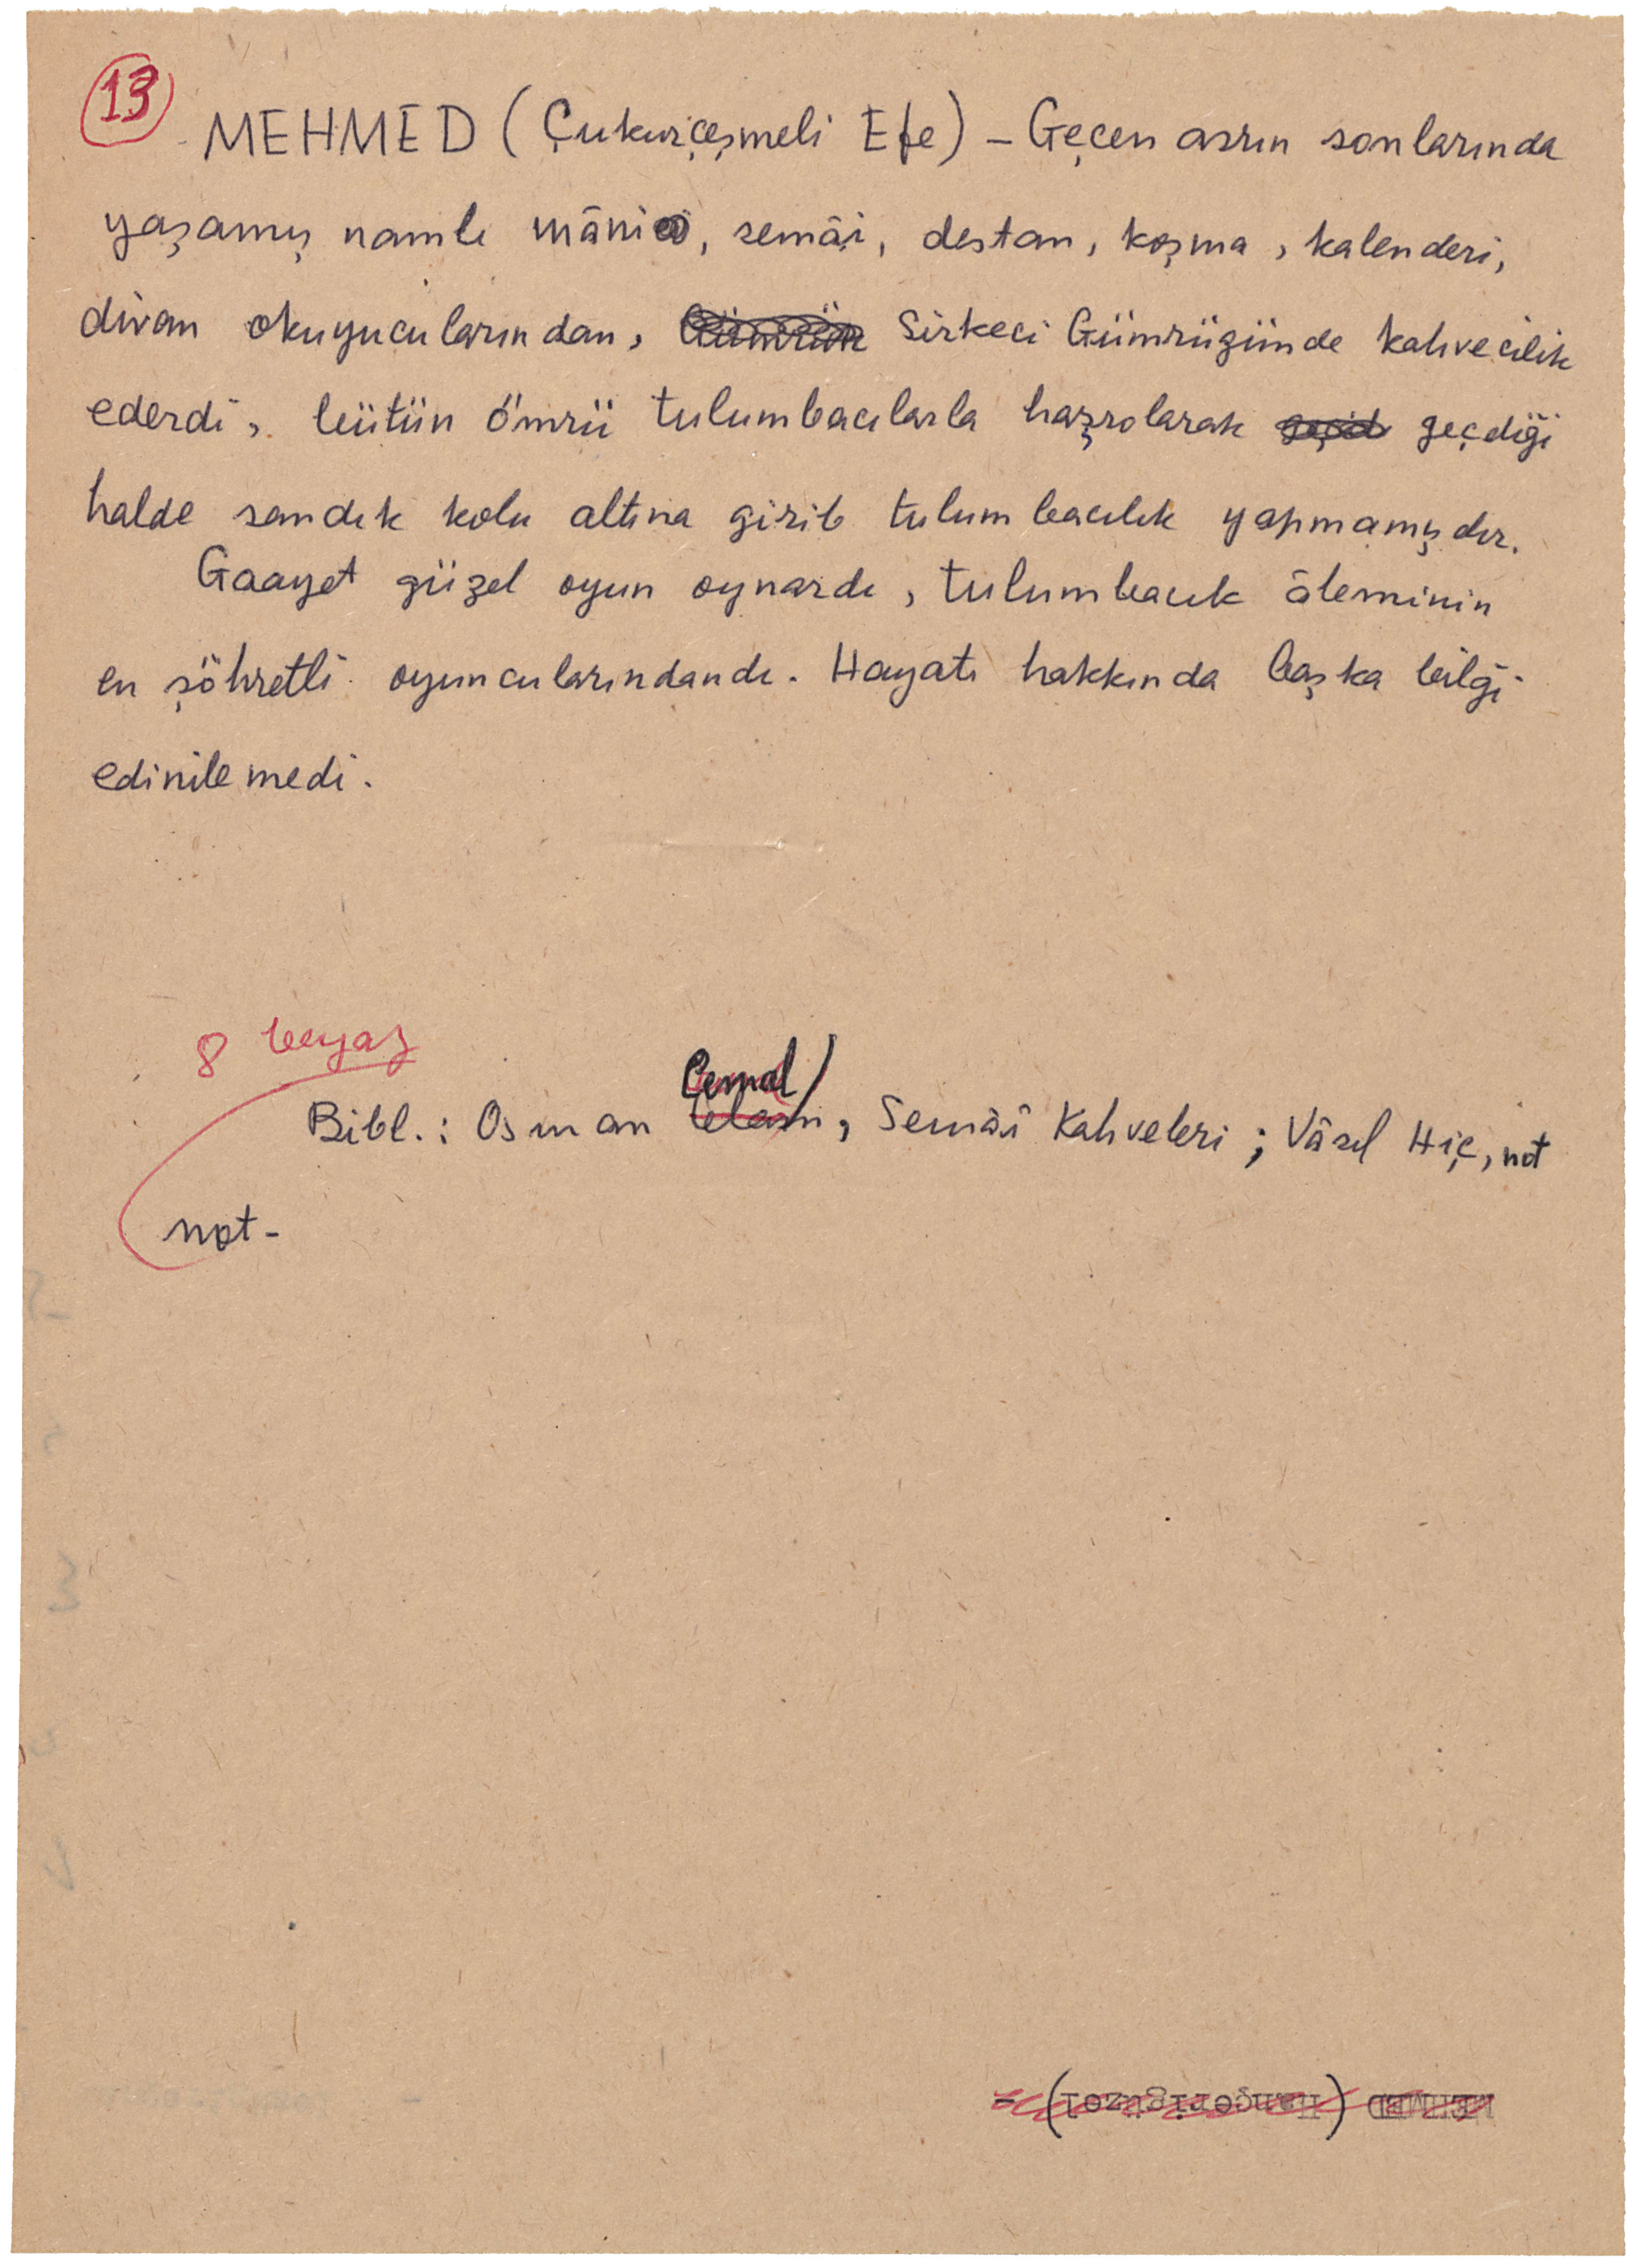 13
MEHMED (Çukurçeşmeli Efe) – Geçen asrın sonlarında
yaşamış namlı mâni, semâi, destan, koşma, kalenderi,
divan okuyucularından, Sirkeci Gümrüğünde kahvecilik
ederdi, bütün ömrü tulumbacılarla haşrolarak geçdiği
halde sandık kolu altına girib tulumbacılık yapmamışdır.
Gaayet güzel oyun oynardı, tulumbacık âleminin
en şöhretli oyuncularındandı. Hayatı hakkında başka bilgi
edinilemedi.
8 beyaz
Cemal
Bibl.: Osman, Semâi Kahveleri; Vâsıf Hiç, not
not-
MEHMED (Hançerligüzel) –